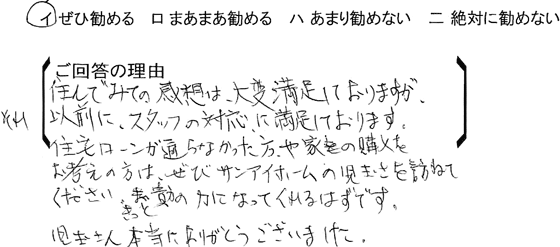 イ ぜひ勧める ロ まあまあ勧める ハ あまり勧めない ニ 絶対に勧めない
ご回答の理由
住んでみての感想は、大変満足しておりますが、
それ以前に、スタッフの対応に満足しております。
住宅ローンが通らなかった方や家をの購入を
お考えの方は、ぜひサンアイホームの児玉さを訪ねて
ください。きっと貴方の力になってくれるはずです。
児玉さん本当にありがとうございました。